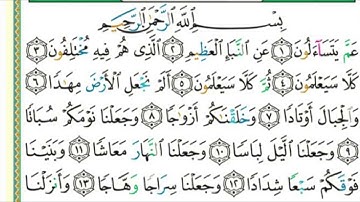 بِسْمِ اللَّهِ الرَّحْمَٰنِ الرَّحِيمِ
عَمَّ يَتَسَاءَلُونَ ١ عَنِ النَّبَإِ الْعَظِيمِ ٢ الَّذِي هُمْ فِيهِ مُخْتَلِفُونَ ٣
كَلَّا سَيَعْلَمُونَ ٤ ثُمَّ كَلَّا سَيَعْلَمُونَ ٥ أَلَمْ نَجْعَلِ الْأَرْضَ مِهَادًا ٦
وَالْجِبَالَ أَوْتَادًا ٧ وَخَلَقْنَاكُمْ أَزْوَاجًا ٨ وَجَعَلْنَا نَوْمَكُمْ سُبَاتًا
٩ وَجَعَلْنَا اللَّيْلَ لِبَاسًا ١٠ وَجَعَلْنَا النَّهَارَ مَعَاشًا ١١ وَبَنَيْنَا
فَوْقَكُمْ سَبْعًا شِدَادًا ١٢ وَجَعَلْنَا سِرَاجًا وَهَّاجًا ١٣ وَأَنْزَلْنَا